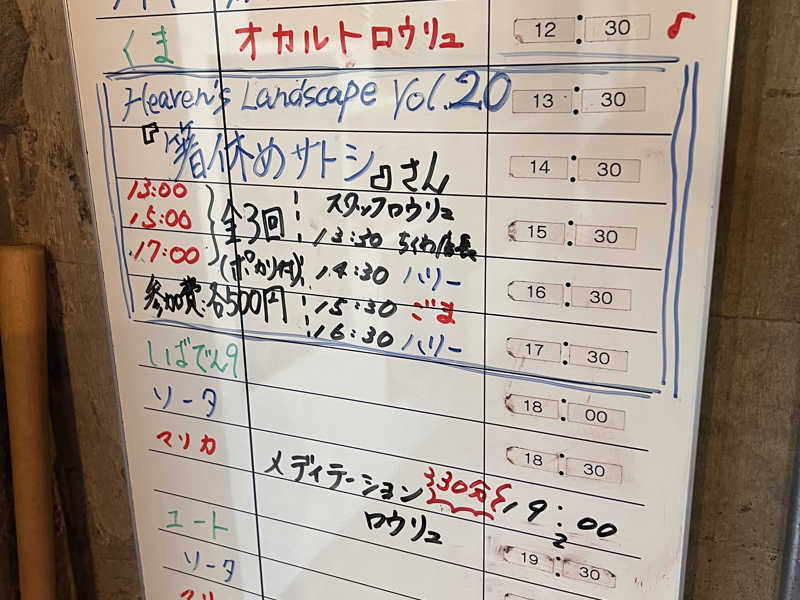 くま オカルトロウリュ 12:30
Heaven's Landscape Vol.20 13:30
『箸休めサトシ』さん 14:30
13:00 スタッフロウリュ
15:00 全3回 13:30 ちくわ店長 15:30
17:00 (ポカリ付) 14:30 ハリー 16:30
参加費:各500円 15:30 ごま
16:30 ハリー 17:30
しばでん9
ソータ 18:00
マリカ 18:30
メディテーション 30分 19:00
ロウリュ 2
ユート 19:30
ソータ